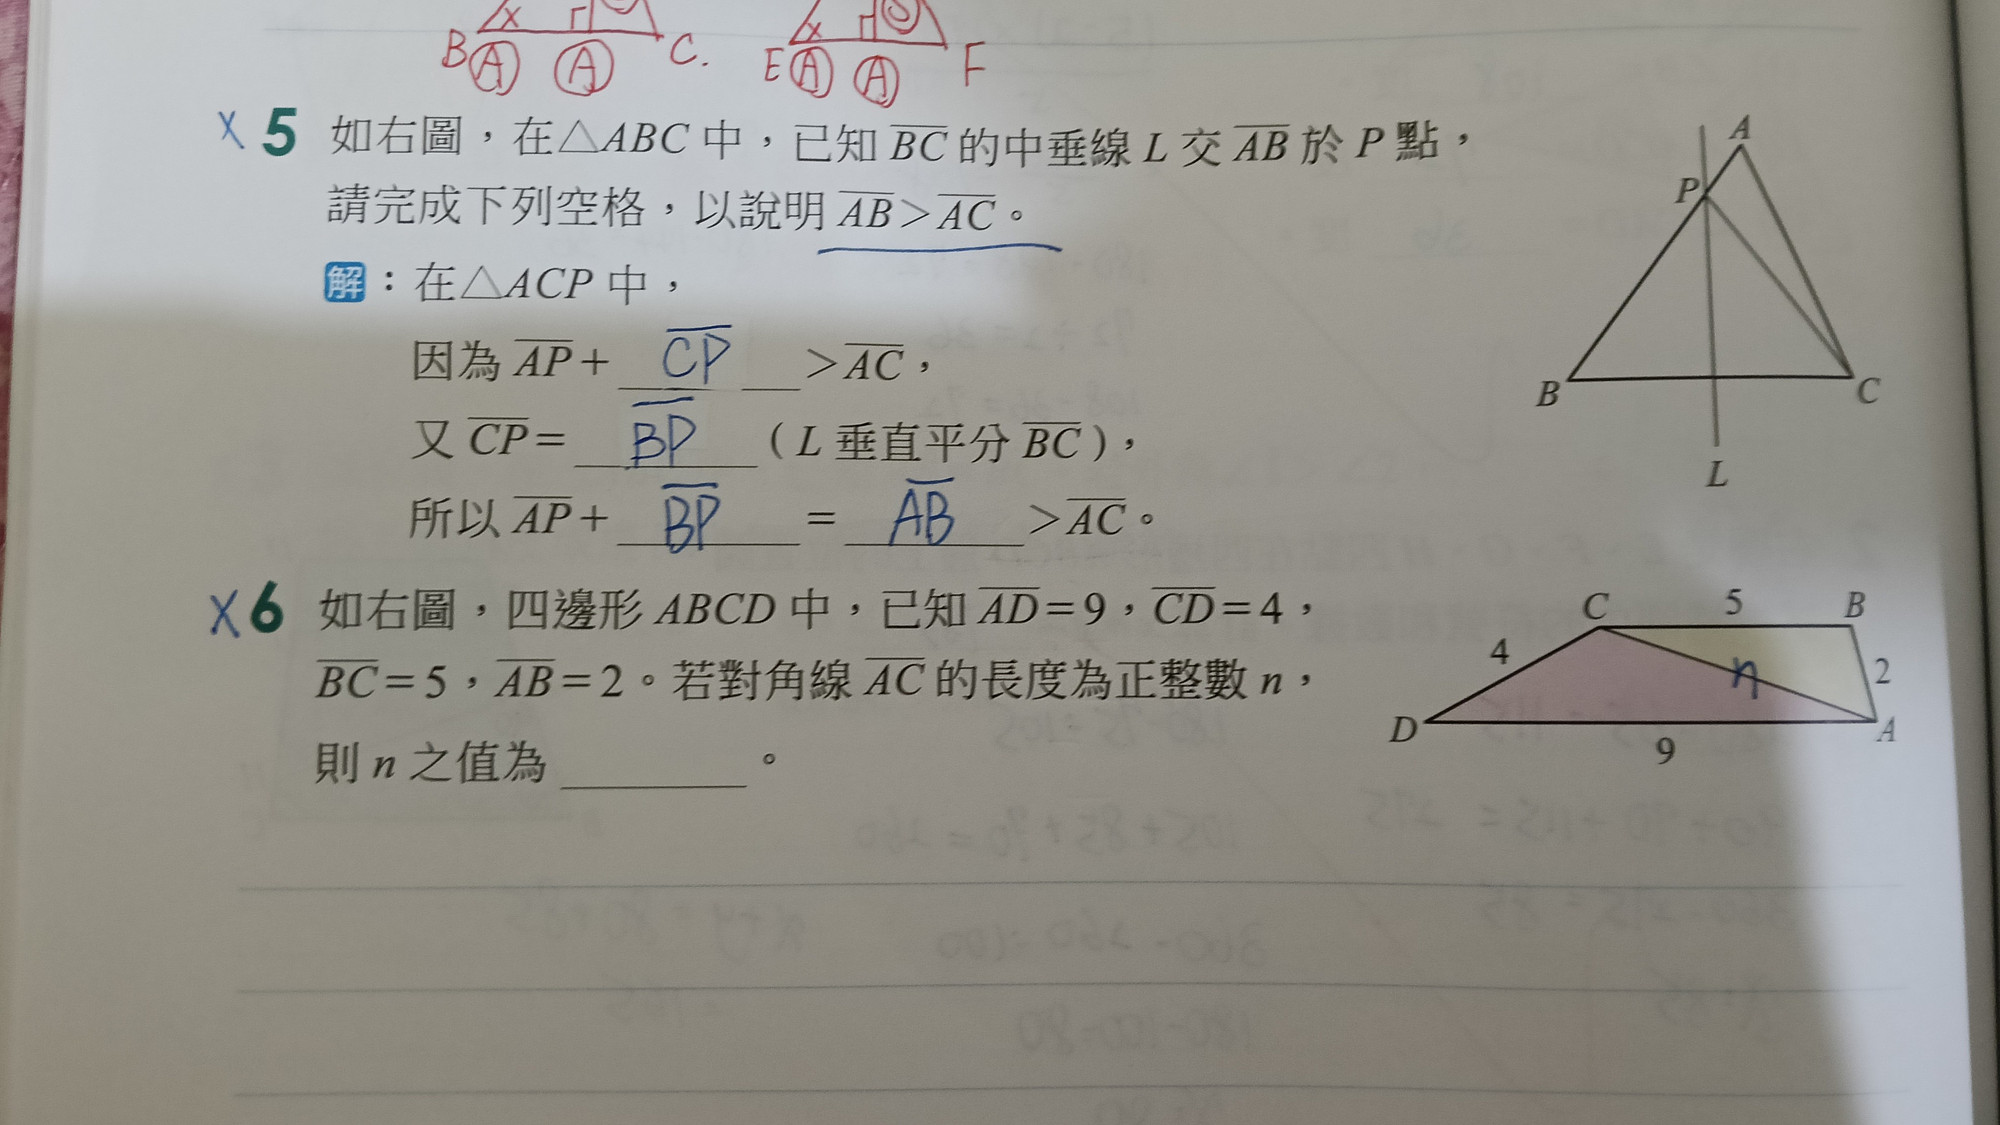 B A A C. E A A F
X 5 如右圖，在△ABC 中，已知 BC 的中垂線 L 交 AB 於 P 點，
請完成下列空格，以說明 AB＞AC。
解：在△ACP 中，
因為 AP＋ CP ＞AC，
又 CP＝ BP （L 垂直平分 BC），
所以 AP＋ BP ＝ AB ＞AC。
A
P
B
C
L
X 6 如右圖，四邊形 ABCD 中，已知 AD＝9，CD＝4，
BC＝5，AB＝2。若對角線 AC 的長度為正整數 n，
則 n 之值為 ______ 。
C 5 B
4 n 2
D A
9